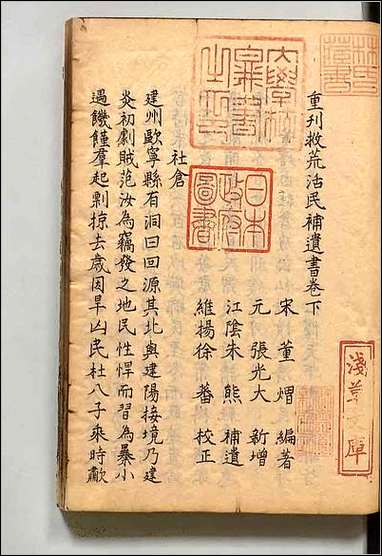 重刊救荒活民補遺書卷下
宋 董 煟 編著
元 張光大 新增
江陰朱 熊 補遺
維揚徐 蕃 校正
社倉
建州歐寧縣有洞曰回源其北與建陽接境乃建
炎初劇賊范汝為竊發之地民性悍而習為暴小
遇饑饉羣起剽掠去歲因旱凶民杜八子乘時歗
林氏藏書
大學校圖書之印
日本政府圖書
淺草文庫